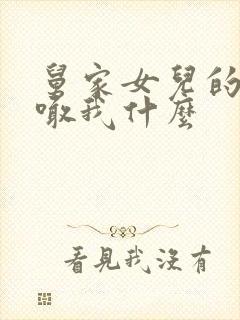 舅家女兒的
噉我什麼
看見我沒有